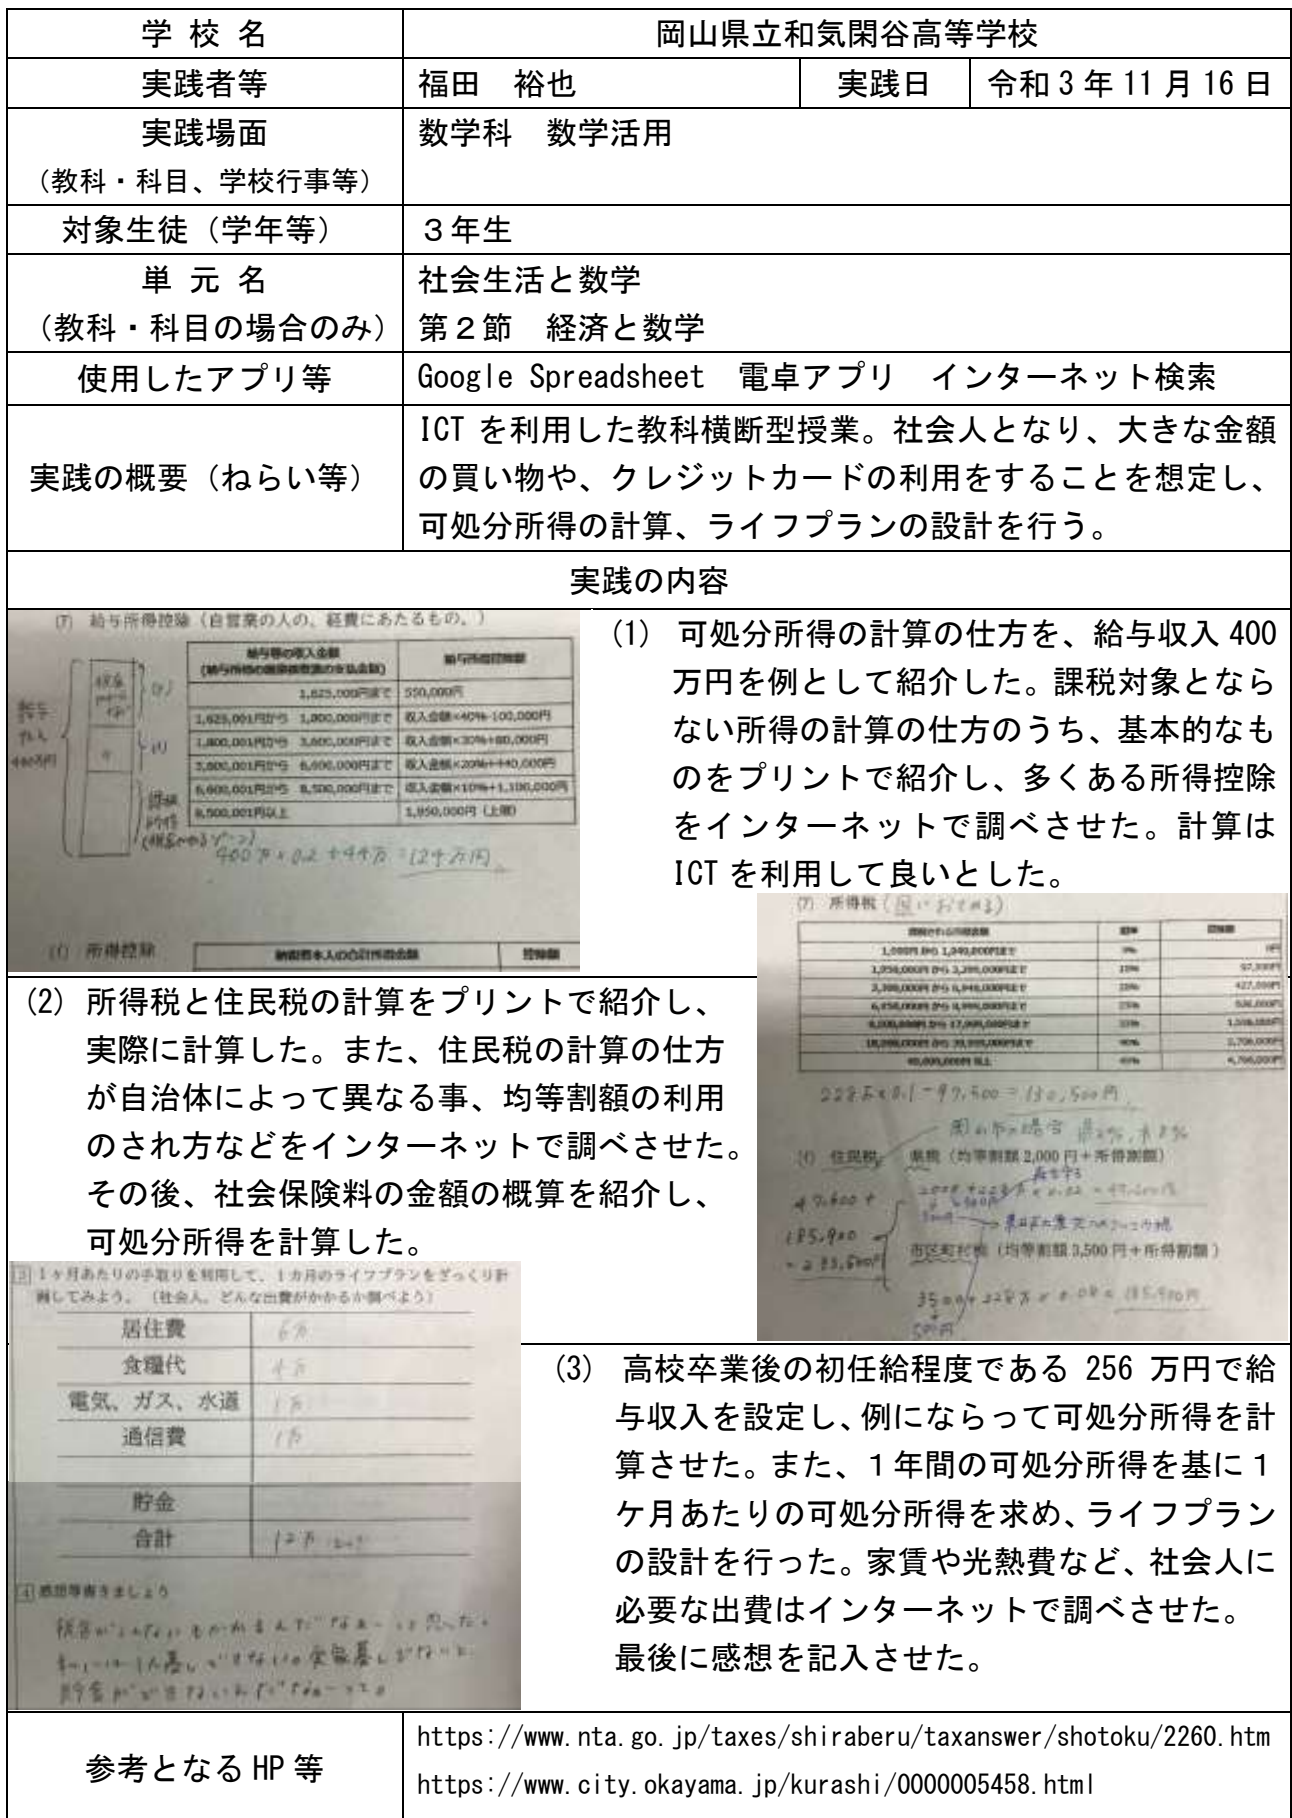 学 校 名
岡山県立和気閑谷高等学校
実践者等
福田 裕也
実践日
令和3年11月16日
実践場面
(教科・科目、学校行事等)
数学科 数学活用
対象生徒(学年等)
3年生
単 元 名
(教科・科目の場合のみ)
社会生活と数学
第2節 経済と数学
使用したアプリ等
Google Spreadsheet 電卓アプリ インターネット検索
実践の概要(ねらい等)
ICTを利用した教科横断型授業。社会人となり、大きな金額
の買い物や、クレジットカードの利用をすることを想定し、
可処分所得の計算、ライフプランの設計を行う。
実践の内容
(ア) 給与所得控除(自営業の人の、経費にあたるもの。)
給与等の収入金額
(給与所得の源泉徴収票の支払金額)
給与所得控除額
1,625,000円まで 550,000円
1,625,001円から 1,800,000円まで 収入金額×40%-100,000円
1,800,001円から 3,600,000円まで 収入金額×30%+80,000円
3,600,001円から 6,600,000円まで 収入金額×20%+440,000円
6,600,001円から 8,500,000円まで 収入金額×10%+1,100,000円
8,500,001円以上 1,950,000円(上限)
給与
収入
400万円
課税
所得
400万×0.2+44万=124万円
(イ) 所得控除
納税者本人の合計所得金額
控除額
(1) 可処分所得の計算の仕方を、給与収入400
万円を例として紹介した。課税対象となら
ない所得の計算の仕方のうち、基本的なも
のをプリントで紹介し、多くある所得控除
をインターネットで調べさせた。計算は
ICTを利用して良いとした。
(2) 所得税と住民税の計算をプリントで紹介し、
実際に計算した。また、住民税の計算の仕方
が自治体によって異なる事、均等割額の利用
のされ方などをインターネットで調べさせた。
その後、社会保険料の金額の概算を紹介し、
可処分所得を計算した。
(ア) 所得税
課税される所得金額 税率 控除額
228万×0.1-97,500=130,500円
(イ) 住民税
県税(均等割額2,000円+所得割額)
市区町村税(均等割額3,500円+所得割額)
3500+228万×0.08=185,900円
3 1ヶ月あたりの手取りを利用して、1カ月のライフプランをざっくり計
画してみよう。(社会人、どんな出費がかかるか調べよう)
居住費 6万
食糧代 4万
電気、ガス、水道 1万
通信費 1万
貯金
合計 12万
4 感想等書きましょう
(3) 高校卒業後の初任給程度である256万円で給
与収入を設定し、例にならって可処分所得を計
算させた。また、1年間の可処分所得を基に1
ケ月あたりの可処分所得を求め、ライフプラン
の設計を行った。家賃や光熱費など、社会人に
必要な出費はインターネットで調べさせた。
最後に感想を記入させた。
参考となるHP等
https://www.nta.go.jp/taxes/shiraberu/taxanswer/shotoku/2260.htm
https://www.city.okayama.jp/kurashi/0000005458.html